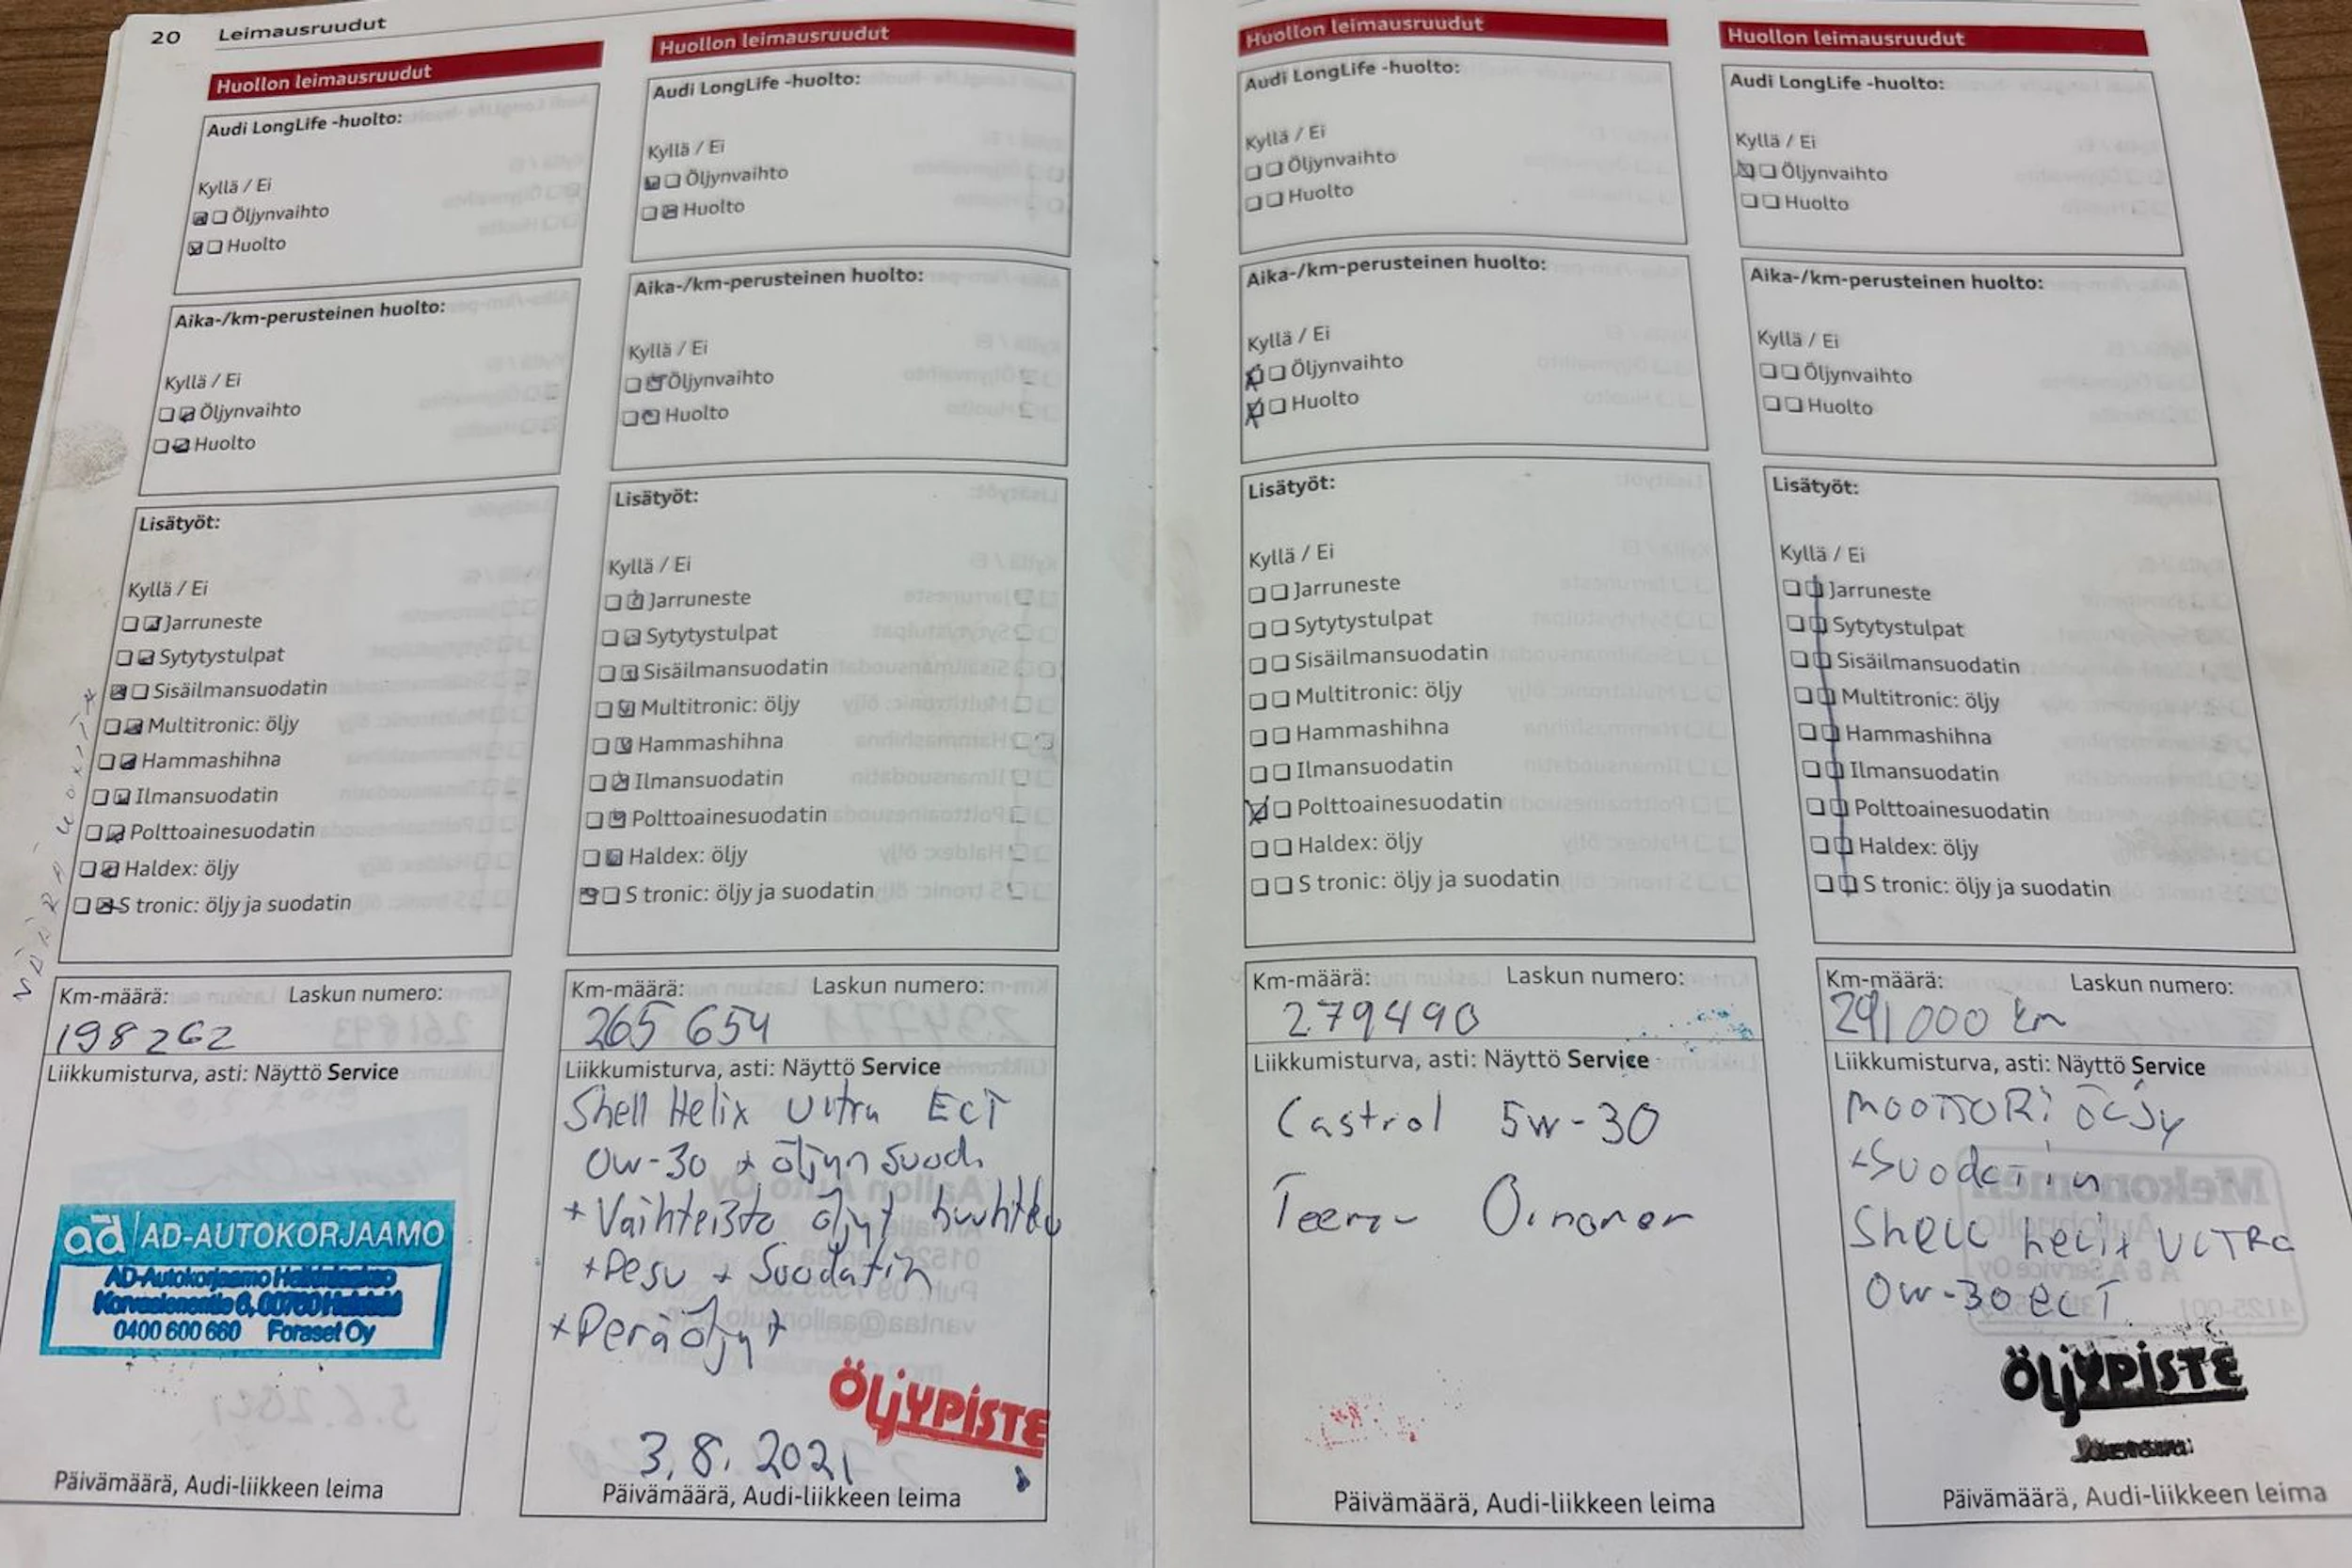 20 Leimausruudut
Huollon leimausruudut
Audi LongLife -huolto:
Kyllä / Ei
Öljynvaihto
Huolto
Aika-/km-perusteinen huolto:
Kyllä / Ei
Öljynvaihto
Huolto
Lisätyöt:
Kyllä / Ei
Jarruneste
Sytytystulpat
Sisäilmansuodatin
Multitronic: öljy
Hammashihna
Ilmansuodatin
Polttoainesuodatin
Haldex: öljy
S tronic: öljy ja suodatin
Km-määrä: Laskun numero:
198262
Liikkumisturva, asti: Näyttö Service
ad AD-AUTOKORJAAMO
AD-Autokorjaamo
0400 600 660 Foraset Oy
Päivämäärä, Audi-liikkeen leima
Huollon leimausruudut
Audi LongLife -huolto:
Kyllä / Ei
Öljynvaihto
Huolto
Aika-/km-perusteinen huolto:
Kyllä / Ei
Öljynvaihto
Huolto
Lisätyöt:
Kyllä / Ei
Jarruneste
Sytytystulpat
Sisäilmansuodatin
Multitronic: öljy
Hammashihna
Ilmansuodatin
Polttoainesuodatin
Haldex: öljy
S tronic: öljy ja suodatin
Km-määrä: Laskun numero:
265 654
Liikkumisturva, asti: Näyttö Service
Shell Helix Ultra ECT
0w-30 + öljyn suod.
+ Vaihteisto öljyt huuhtelu
+ Pesu + Suodatin
+ Peräöljyt
ÖLJYPISTE
3.8.2021
Päivämäärä, Audi-liikkeen leima
Huollon leimausruudut
Audi LongLife -huolto:
Kyllä / Ei
Öljynvaihto
Huolto
Aika-/km-perusteinen huolto:
Kyllä / Ei
Öljynvaihto
Huolto
Lisätyöt:
Kyllä / Ei
Jarruneste
Sytytystulpat
Sisäilmansuodatin
Multitronic: öljy
Hammashihna
Ilmansuodatin
Polttoainesuodatin
Haldex: öljy
S tronic: öljy ja suodatin
Km-määrä: Laskun numero:
279490
Liikkumisturva, asti: Näyttö Service
Castrol 5w-30
Päivämäärä, Audi-liikkeen leima
Huollon leimausruudut
Audi LongLife -huolto:
Kyllä / Ei
Öljynvaihto
Huolto
Aika-/km-perusteinen huolto:
Kyllä / Ei
Öljynvaihto
Huolto
Lisätyöt:
Kyllä / Ei
Jarruneste
Sytytystulpat
Sisäilmansuodatin
Multitronic: öljy
Hammashihna
Ilmansuodatin
Polttoainesuodatin
Haldex: öljy
S tronic: öljy ja suodatin
Km-määrä: Laskun numero:
291 000 km
Liikkumisturva, asti: Näyttö Service
MOOTTORI ÖLJY
+ Suodatin
Shell helix ULTRA
0w-30 ECT
ÖLJYPISTE
Päivämäärä, Audi-liikkeen leima